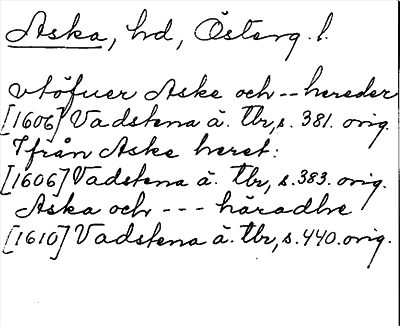 Aska, hd, Österg. l.
vtöfuer Aske och -- hereder
[1606] Vadstena ä. tbr, s. 381. orig.
Ifrån Aske heret:
[1606] Vadstena ä. tbr, s. 383. orig.
Aska och --- häradhe
[1610] Vadstena ä. tbr, s. 440. orig.